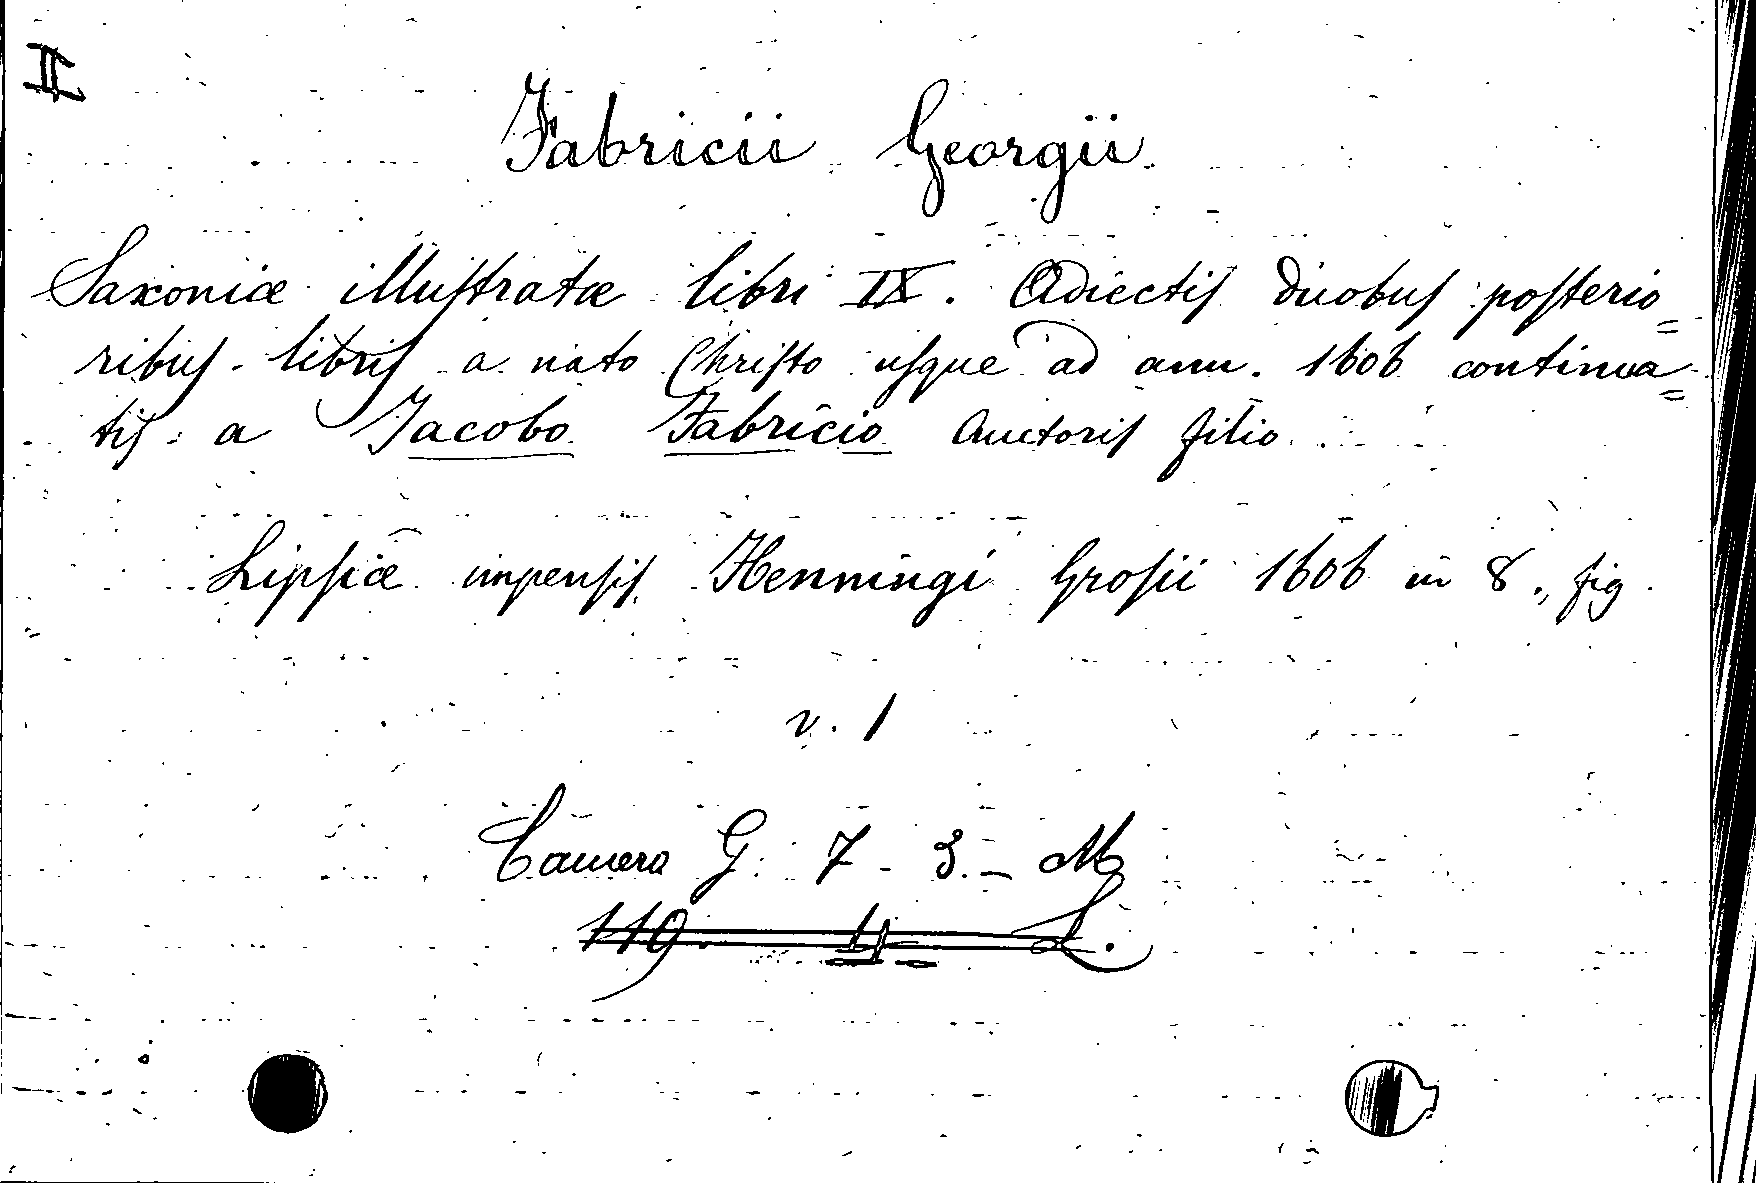 II
Fabricii Georgii
Saxoniæ illustratæ libri IX. Adiectis duobus posterio=
ribus libris a nato Christo usque ad ann. 1606 continua=
tis a Jacobo Fabricio Auctoris filio
Lipsiæ impensis Henningi Grosii 1606 in 8., fig.
v. 1
Camera G. 7 - 3. - M
119. 4 L.